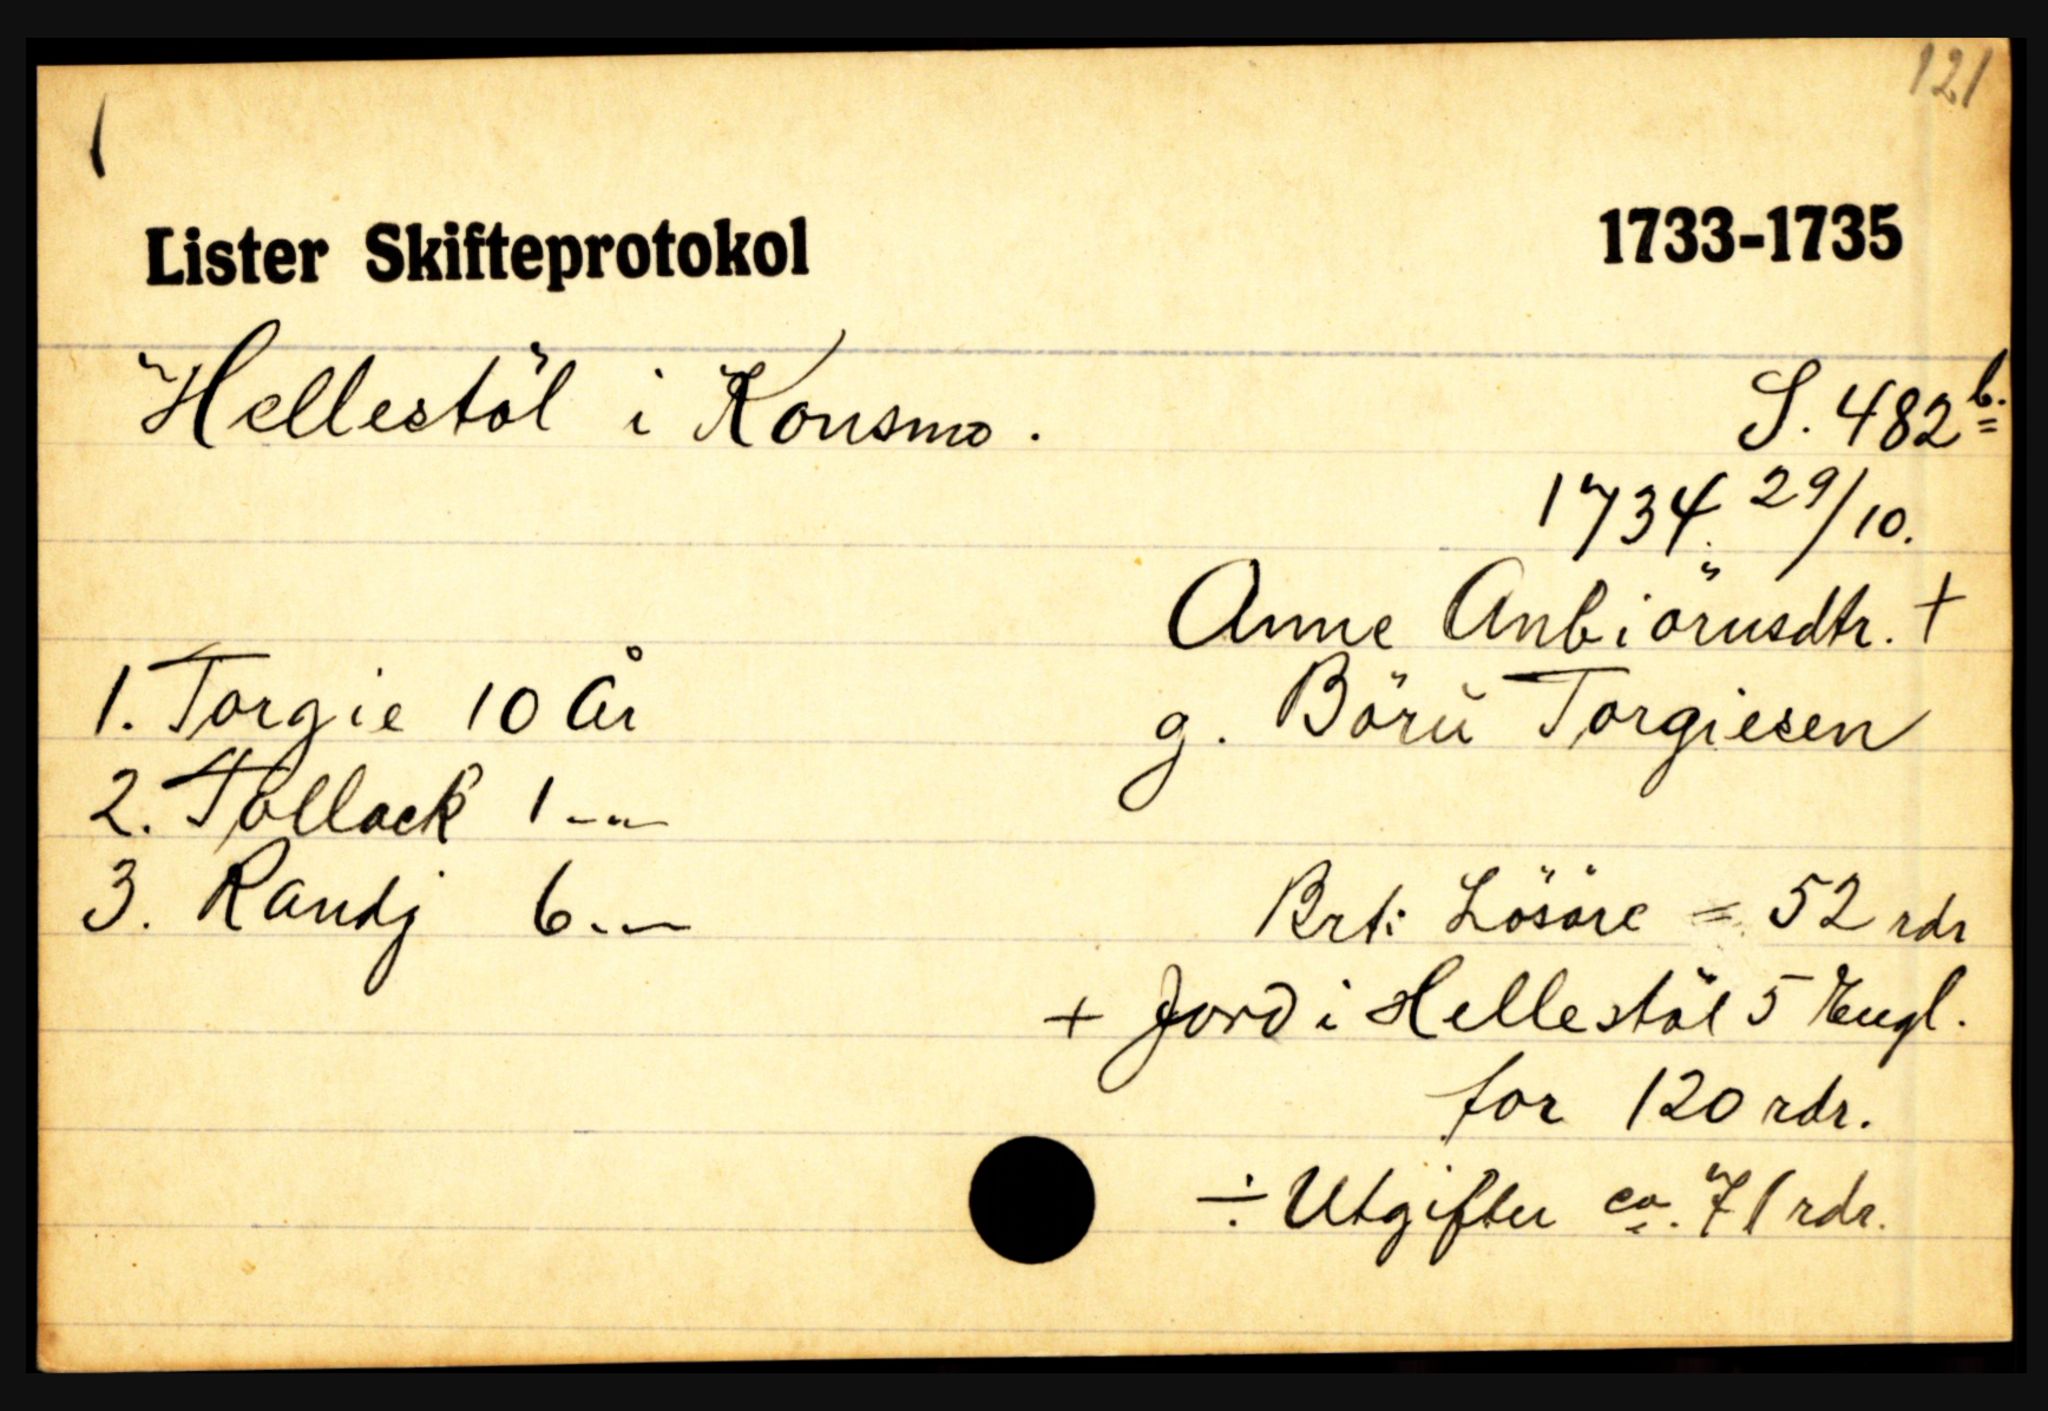 121
Lister Skifteprotokol 1733-1735
Hellestöl i Konsmo. S. 482 b.
1734. 29/10.
Anne Anbiörnsdtr. +
1. Torgie 10 År g. Börü Torgiesen
2. Tollack 1 -"-
3. Randj 6 -"- Brt: Lösöre = 52 rdr
+ Jord i Hellestöl 5 Engl.
for 120 rdr.
÷ Utgifter ca. 71 rdr.